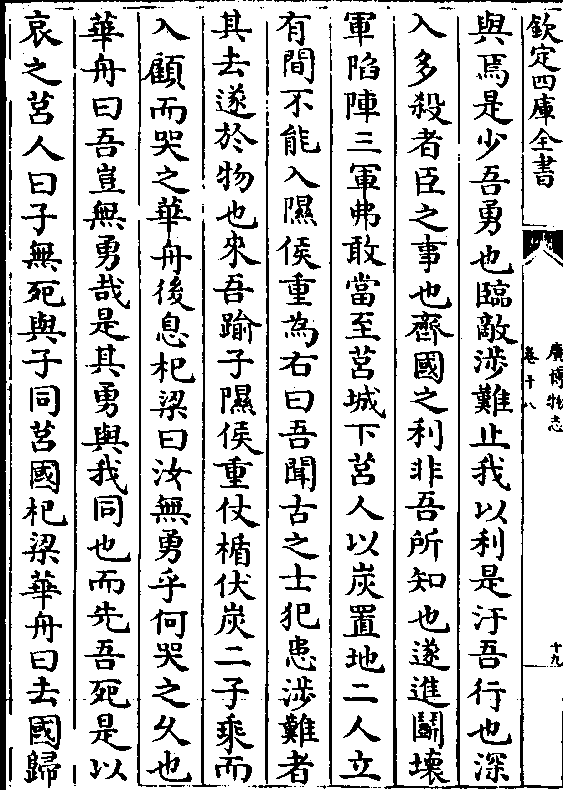 欽定四庫全書
廣博物志
卷十八
十九
與焉是少吾勇也臨敵渉難止我以利是汙吾行也深
入多殺者臣之事也齊國之利非吾所知也遂進鬭壊
軍陷陣三軍弗敢當至莒城下莒人以炭置地二人立
有間不能入隰侯重為右曰吾聞古之士犯患渉難者
其去遂於物也來吾踰子隰侯重仗楯伏炭二子乘而
入顧而哭之華舟後息杞梁曰汝無勇乎何哭之久也
華舟曰吾豈無勇哉是其勇與我同也而先吾死是以
哀之莒人曰子無死與子同莒國杞梁華舟曰去國歸